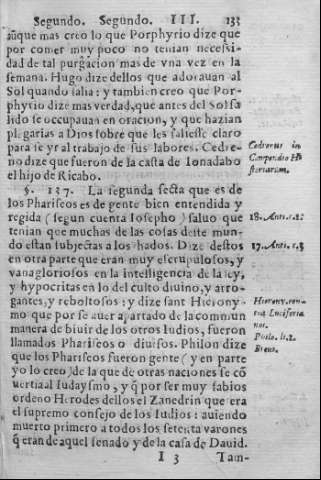 Segundo. Segundo. III. 133
aũque mas creo lo que Porphyrio dize que
por comer muy poco no tenian necessi-
dad de tal purgacion mas de vna vez en la
semana. Hugo dize dellos que adorauan al
Sol quando salia: y tambien creo que Por-
phyrio dize mas verdad, que antes del Sol sa
lido se occupauan en oracion, y que hazian
plegarias a Dios sobre que les saliesse claro
para se yr al trabajo de sus labores. Cedre-
no dize que fueron de la casta de Ionadabo
el hijo de Ricabo.
Cedrenus in
Compendio Hi
storiarum.
§. 137. La segunda secta que es de
los Phariseos es de gente bien entendida y
regida (segun cuenta Iosepho) saluo que
tenian que muchas de las cosas deste mun-
do estan subjectas a los hados. Dize destos
en otra parte que eran muy escrupulosos, y
vanagloriosos en la intelligencia de la ley,
y hypocritas en lo del culto diuino, y arro-
gantes, y reboltosos: y dize sant Hierony-
mo que por se auer apartado de la commun
manera de biuir de los otros Iudios, fueron
llamados Phariseos o diuisos. Philon dize
que los Phariseos fueron gente (y en parte
yo lo creo) de la que de otras naciones se cõ
uertia al Iudaysmo, y q̃ por ser muy sabios
ordeno Herodes dellos el Zanedrin que era
el supremo consejo de los Iudios: auiendo
muerto primero a todos los setenta varones
q̃ eran de aquel senado y de la casa de Dauid.
18. Anti. c. 2.
17. Anti. c. 3
Hierony. con-
tra Luciferia
nos.
Philo. li. 2.
Breui.
I 3 Tam-